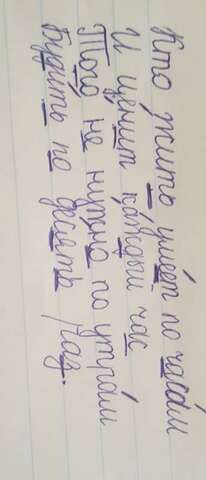 Кто жить умеет по часам
И ценит каждый час
Того не нужно по утрам
Будить по десять раз.